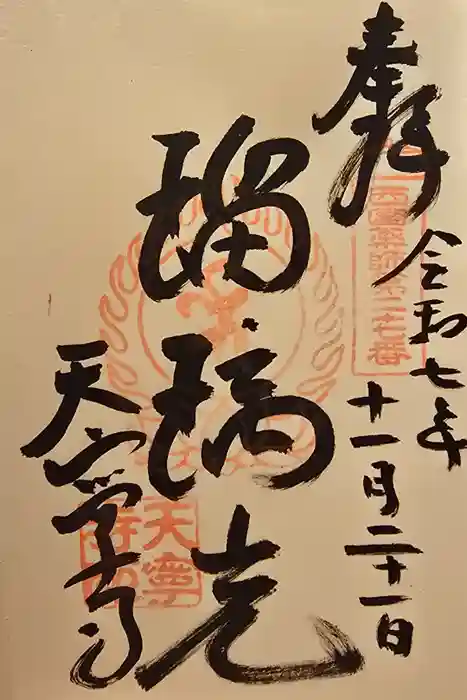 奉拝
令和七年
十一月二十一日
西國薬師第二七番
瑠璃光
天寧寺
天寧